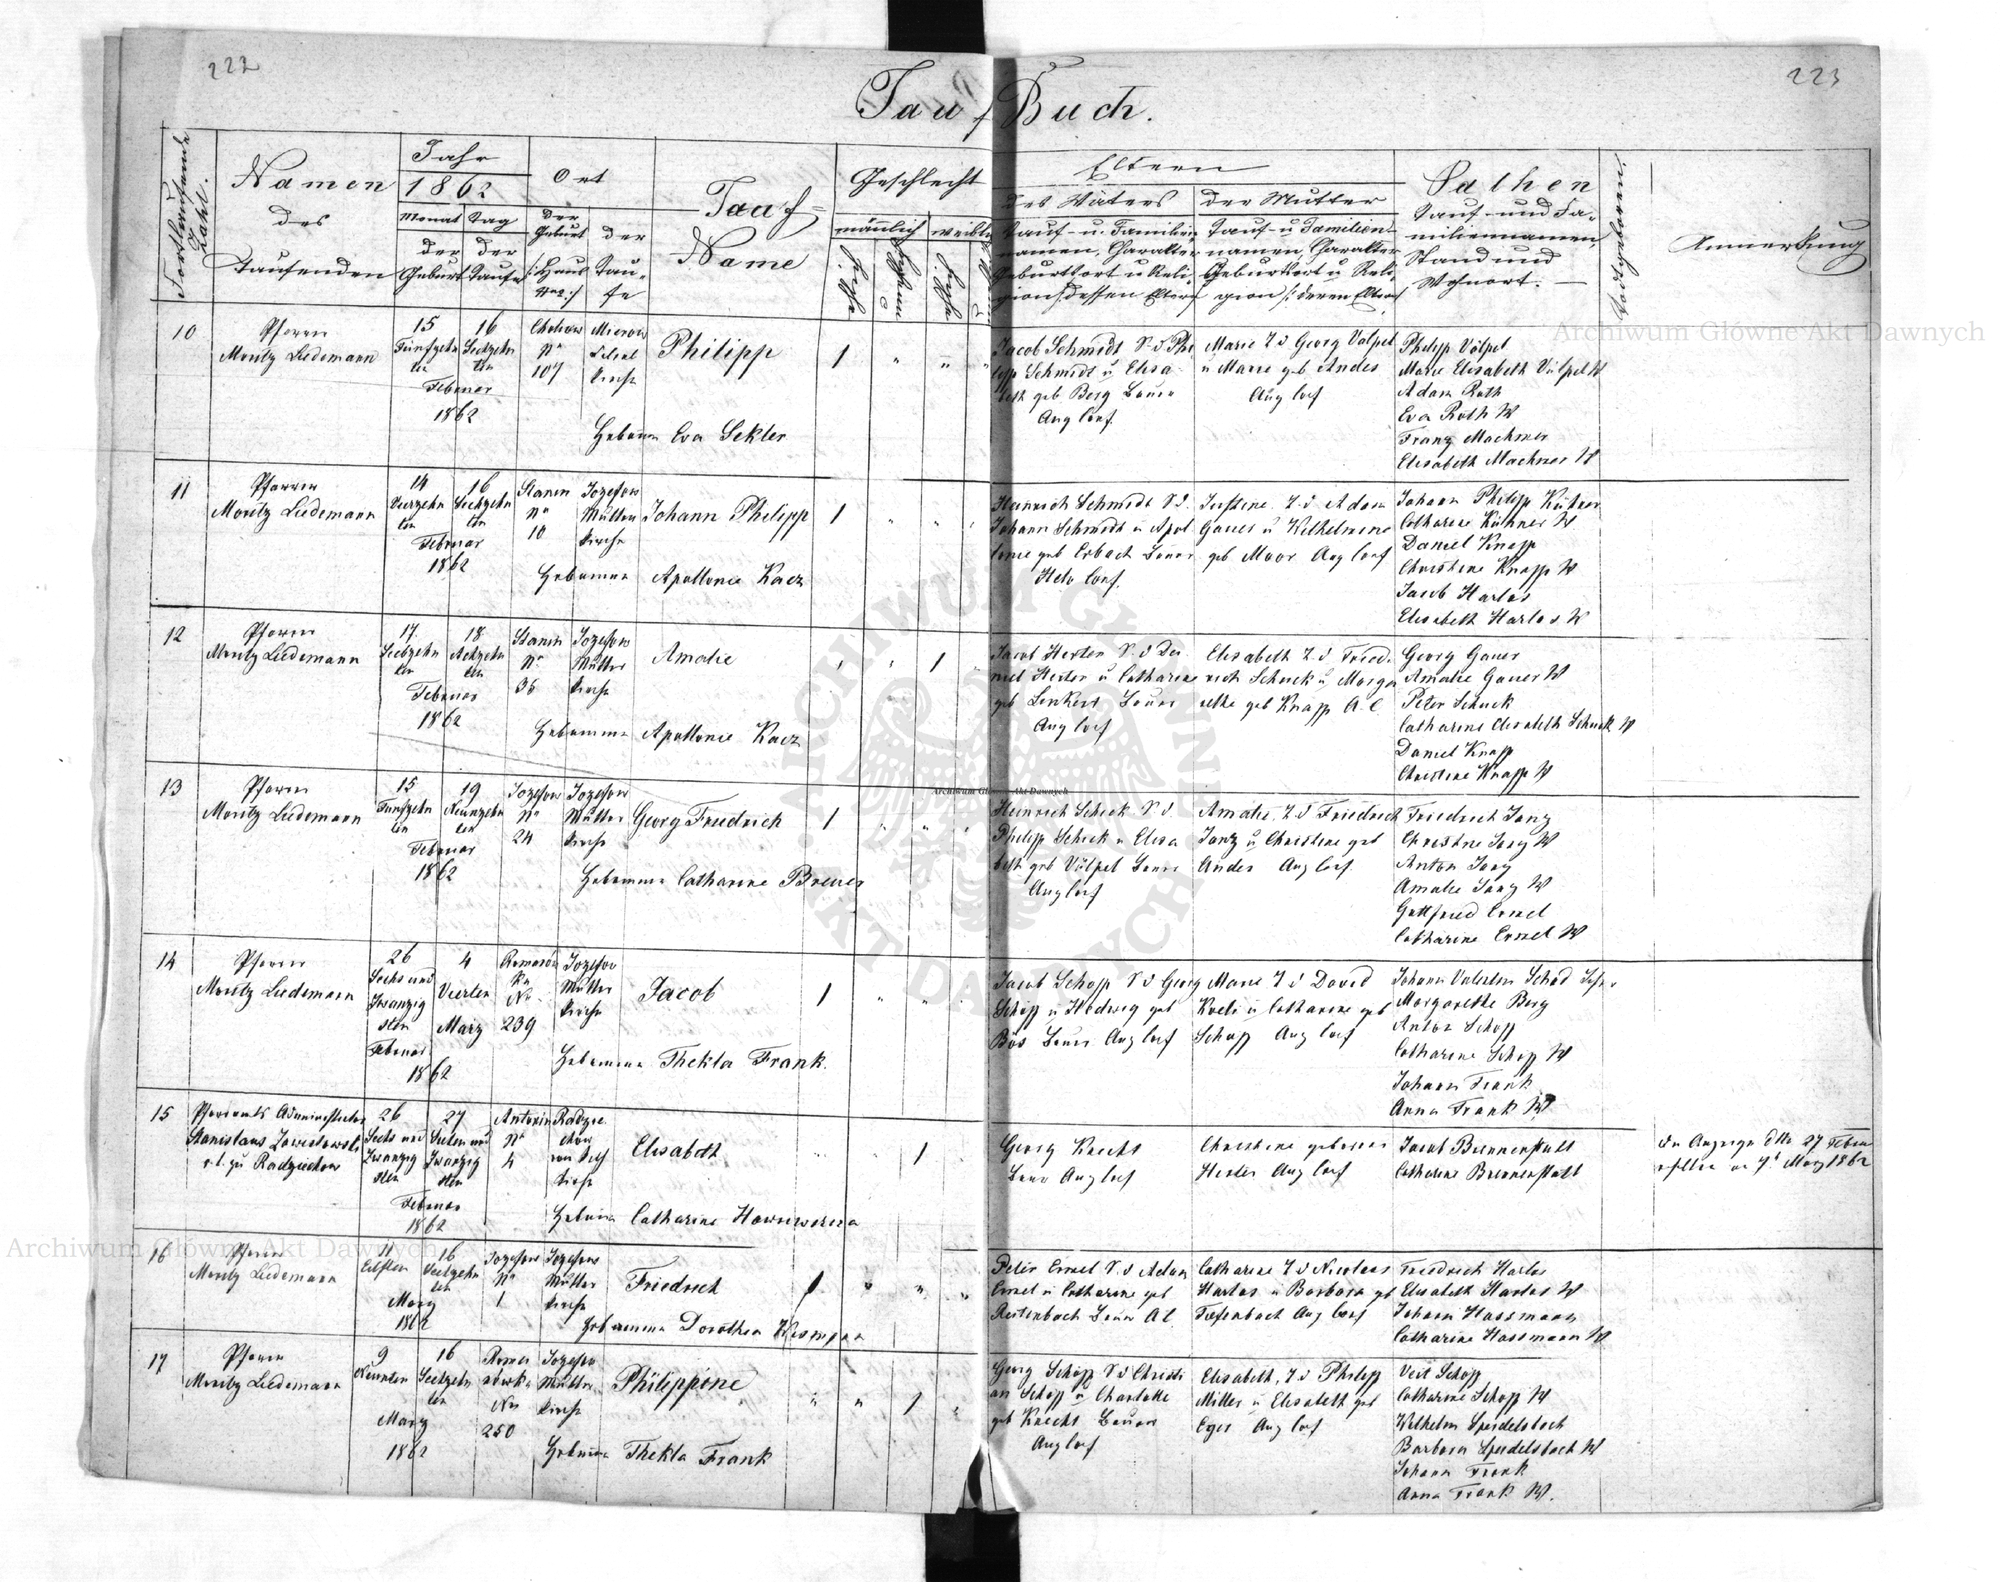 222
223
Tauf Buch.
Fortlaufende Zahl.
Namen
des
Taufenden
Jahr
1862
Monat Tag
der der
Geburt Taufe
Ort
der
Geburt
Haus
Nro
der
Tau-
fe
Tauf-
Name
Geschlecht
männlich
weiblich
Eltern
des Vaters
Tauf- u. Familien-
namen, Charakter
Geburtsort u Reli-
gion dessen Eltern
der Mutter
Tauf- u Familien-
namen, Charakter
Geburtsort u Reli-
gion deren Eltern
Pathen
Tauf- und Fa-
miliennamen,
Stand und
Wohnort.
Anmerkung
10
Pfarrer
Moritz Liedemann
15
Fünfzehn
ten
16
Sechzehn
ten
Februar
1862
Cholow
No
107
Mierow
Filial
kirche
Philipp
1
Hebamme Eva Sekler
Jacob Schmidt S. d Phi
lipp Schmidt u Elisa
beth geb Berg Bauer
Aug Conf.
Marie T d Georg Völpel
u Marie geb Andes
Aug Conf
Philipp Völpel
Marie Elisabeth Völpel W
Adam Roth
Eva Roth W
Franz Machmer
Elisabeth Machmer W
11
Pfarrer
Moritz Liedemann
14
Vierzehn
ten
16
Sechzehn
ten
Februar
1862
Stanin
No
10
Jozefow
Mutter
kirche
Johann Philipp
1
Hebamme Apollonie Kacz
Heinrich Schmidt S d.
Johann Schmidt u Apol
lonie geb Erbach Bauer
Helv Conf.
Justine T. d Adam
Gauer u Wilhelmine
geb Moor Aug Conf
Johann Philipp Kühner
Catharine Kühner W
Daniel Knapp
Christine Knapp W
Jacob Harlos
Elisabeth Harlos W
12
Pfarrer
Moritz Liedemann
17
Siebzehn
ten
18
Achtzehn
ten
Februar
1862
Stanin
No
36
Jozefow
Mutter
kirche
Amalie
1
Hebamme Apollonie Kacz
Jacob Herter S. d Da
niel Herter u Catharine
geb Lenkert Bauer
Aug Conf
Elisabeth T. d Fried-
rich Schuck u Marga
rethe geb Knapp A. C.
Georg Gauer
Amalie Gauer W
Peter Schuck
Catharine Elisabeth Schuck W
Daniel Knapp
Christine Knapp W
13
Pfarrer
Moritz Liedemann
15
Fünfzehn
ten
19
Neunzehn
ten
Februar
1862
Jozefow
No
24
Jozefow
Mutter
kirche
Georg Friedrich
1
Hebamme Catharine Breuer
Heinrich Schick S. d.
Philipp Schick u Elisa
beth geb Völpel Bauer
Aug Conf
Amalie T. d Friedrich
Jung u Christine geb
Andes Aug Conf.
Friedrich Jung
Christine Jung W
Anton Jung
Amalie Jung W
Gottfried Ernel
Catharine Ernel W
14
Pfarrer
Moritz Liedemann
26
Sechs und
zwanzig
sten
Februar
1862
4
Vierten
März
No
239
Jozefow
Mutter
kirche
Jacob
1
Hebamme Thekla Frank.
Jacob Schopp S d Georg
Schopp u Hedwig geb
Bös Bauer Aug Conf
Marie T d David
u Catharine geb
Schopp Aug Conf
Johann Valentin Schad
Margarethe Berg
Anton Schopp
Catharine Schopp W
Johann Frank
Anna Frank W
15
Pfarramts Administrator
Stanislaus Zawistowski
r. l. zu Radziechow
26
Sechs und
zwanzig
sten
27
Sieben und
zwanzig
sten
Februar
1862
Antonin
No
4
Radzie
chow
röm kath
kirche
Elisabeth
1
Hebamme Catharine
Georg Knecht
Bauer Aug Conf
Christine geborene
Herter Aug Conf
Jacob Brennenstuhl
Catharine Brennenstuhl
27 Febru
März 1862
16
Pfarrer
Moritz Liedemann
11
Eilften
16
Sechzehn
ten
März
1862
Jozefow
No
1
Jozefow
Mutter
kirche
Friedrich
1
Hebamme Dorothea
Peter Ernel S. d Adam
Ernel u Catharine geb
Reitenbach Bauer A C.
Catharine T d Nicolaus
Harlos u Barbara geb
Tiefenbach Aug Conf
Friedrich Harlos
Elisabeth Harlos W
Johann Hassmann
Catharine Hassmann W
17
Pfarrer
Moritz Liedemann
9
Neunten
16
Sechzehn
ten
März
1862
Romanowka
No
250
Jozefow
Mutter
kirche
Philippine
1
Hebamme Thekla Frank
Georg Schopp S d Christi
an Schopp u Charlotte
geb Knecht Bauer
Aug Conf
Elisabeth, T. d Philipp
Miller u Elisabeth geb
Eger Aug Conf
Veit Schopp
Catharine Schopp W
Wilhelm Speidelsbach
Barbara Speidelsbach W
Johann Frank
Anna Frank W.
Archiwum Główne Akt Dawnych
Archiwum Główne Akt Dawnych
Archiwum Główne Akt Dawnych
ARCHIWUM GŁÓWNE
AKT DAWNYCH